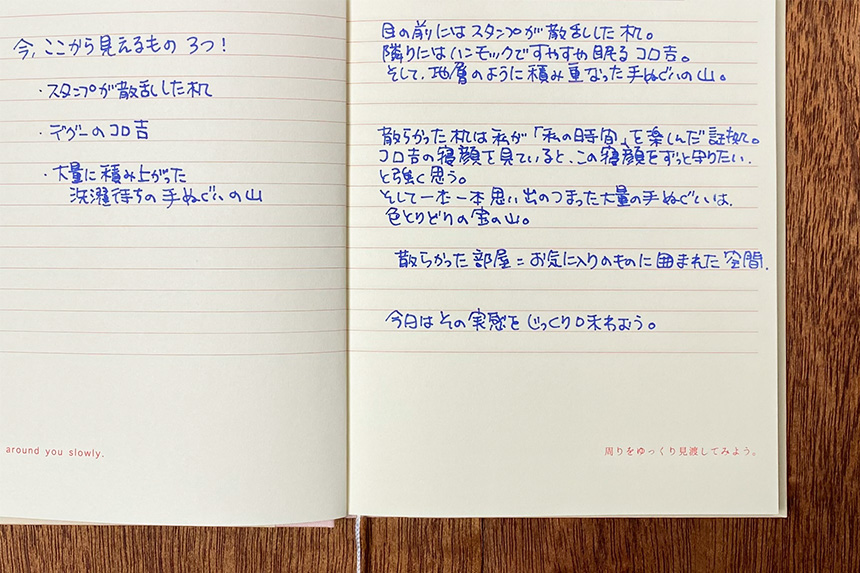 今、ここから見えるもの 3つ!
・スタンプが散乱した机
・デグーのコロ吉
・大量に積み上がった
洗濯待ちの手ぬぐいの山
around you slowly.
目の前にはスタンプが散乱した机。
隣りにはハンモックですやすや眠るコロ吉。
そして、地層のように積み重なった手ぬぐいの山。
散らかった机は私が「私の時間」を楽しんだ証拠。
コロ吉の寝顔を見ていると、この寝顔をずっと守りたい、
と強く思う。
そして一本一本思い出のつまった大量の手ぬぐいは、
色とりどりの宝の山。
散らかった部屋=お気に入りのものに囲まれた空間、
今日はその実感をじっくり味わおう。
周りをゆっくり見渡してみよう。